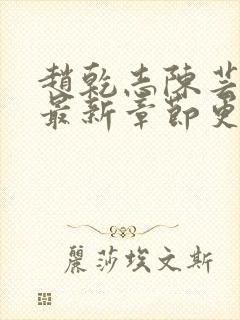 趙乾志陳芸
最新章節更
麗莎埃文斯